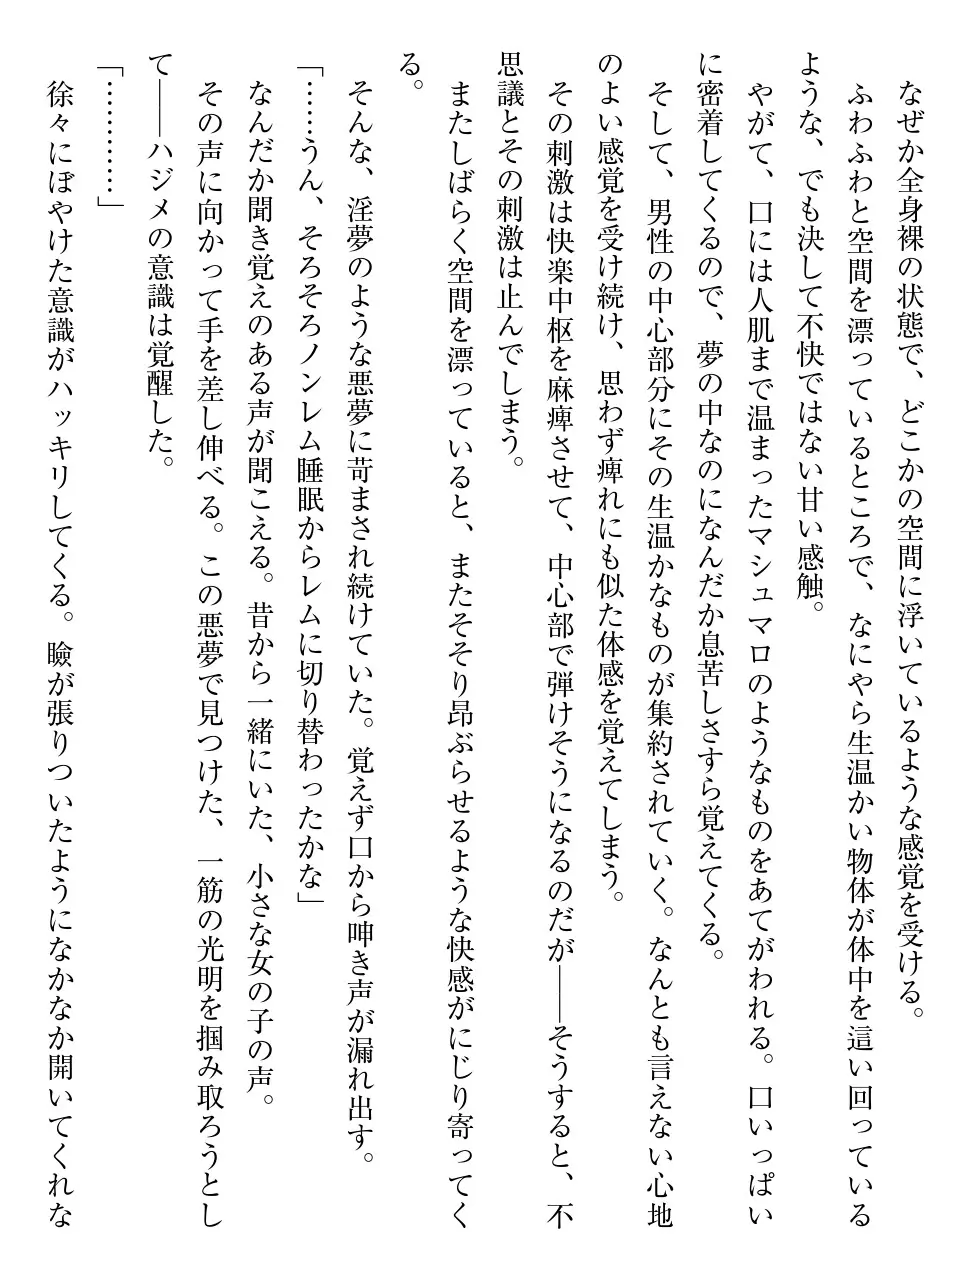 なぜか全身裸の状態で、どこかの空間に浮いているような感覚を受ける。
ふわふわと空間を漂っているところで、なにやら生温かい物体が体中を這い回っている
ような、でも決して不快ではない甘い感触。
やがて、口には人肌まで温まったマシュマロのようなものをあてがわれる。口いっぱい
に密着してくるので、夢の中なのになんだか息苦しさすら覚えてくる。
そして、男性の中心部分にその生温かなものが集約されていく。なんとも言えない心地
のよい感覚を受け続け、思わず痺れにも似た体感を覚えてしまう。
その刺激は快楽中枢を麻痺させて、中心部で弾けそうになるのだが――そうすると、不
思議とその刺激は止んでしまう。
またしばらく空間を漂っていると、またそそり昂ぶらせるような快感がにじり寄ってく
る。
そんな、淫夢のような悪夢に苛まされ続けていた。覚えず口から呻き声が漏れ出す。
「……うん、そろそろノンレム睡眠からレムに切り替わったかな」
なんだか聞き覚えのある声が聞こえる。昔から一緒にいた、小さな女の子の声。
その声に向かって手を差し伸べる。この悪夢で見つけた、一筋の光明を掴み取ろうとし
て――ハジメの意識は覚醒した。
「…………」
徐々にぼやけた意識がハッキリしてくる。瞼が張りついたようになかなか開いてくれな